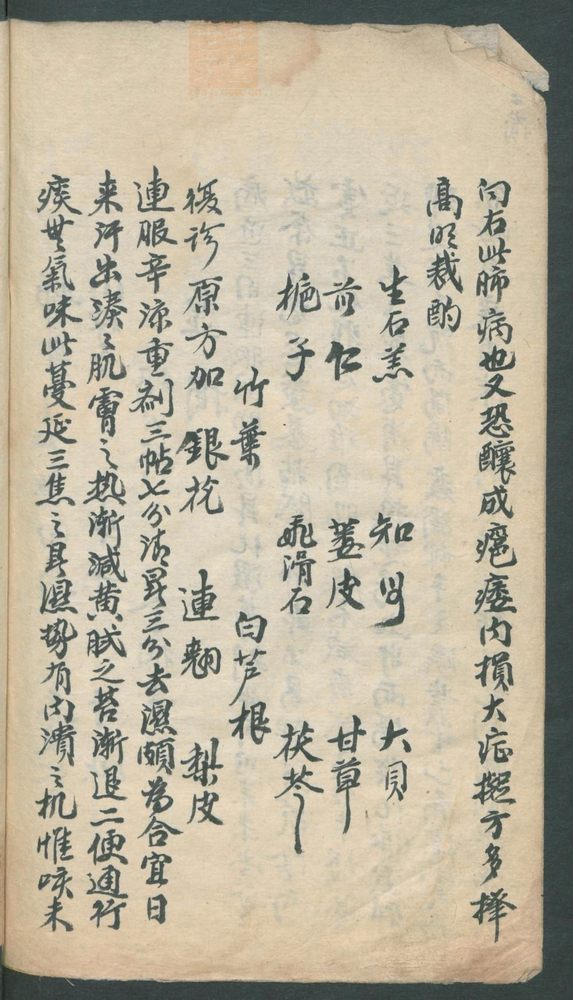 向右此肺病也又恐釀成瘧痙內損大症擬方多擇
高明裁酌
生石羔 知母 大貝
苡仁 蔞皮 甘草
梔子 飛滑石 茯苓
竹葉 白芦根
復診原方加 銀花 連翹 梨皮
連服辛涼重劑三帖七分清暑三分去濕頗為合宜日
来汗出湊湊肌膚之热漸減黄膩之苔漸退二便通行
痰無氣味此蔓延三焦之暑濕勢有內潰之机惟咳未